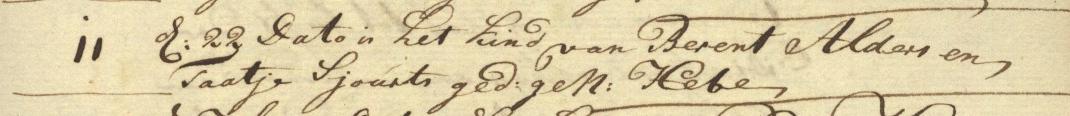 11 d: 22 Dato is het kind van Berent Alders en,
Taatje Sjourts ged: gen: Hebe,